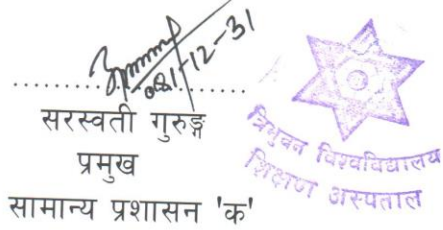 081-12-31
सरस्वती गुरुङ्ग
प्रमुख
सामान्य प्रशासन 'क'
त्रिभुवन विश्वविद्यालय
शिक्षण अस्पताल